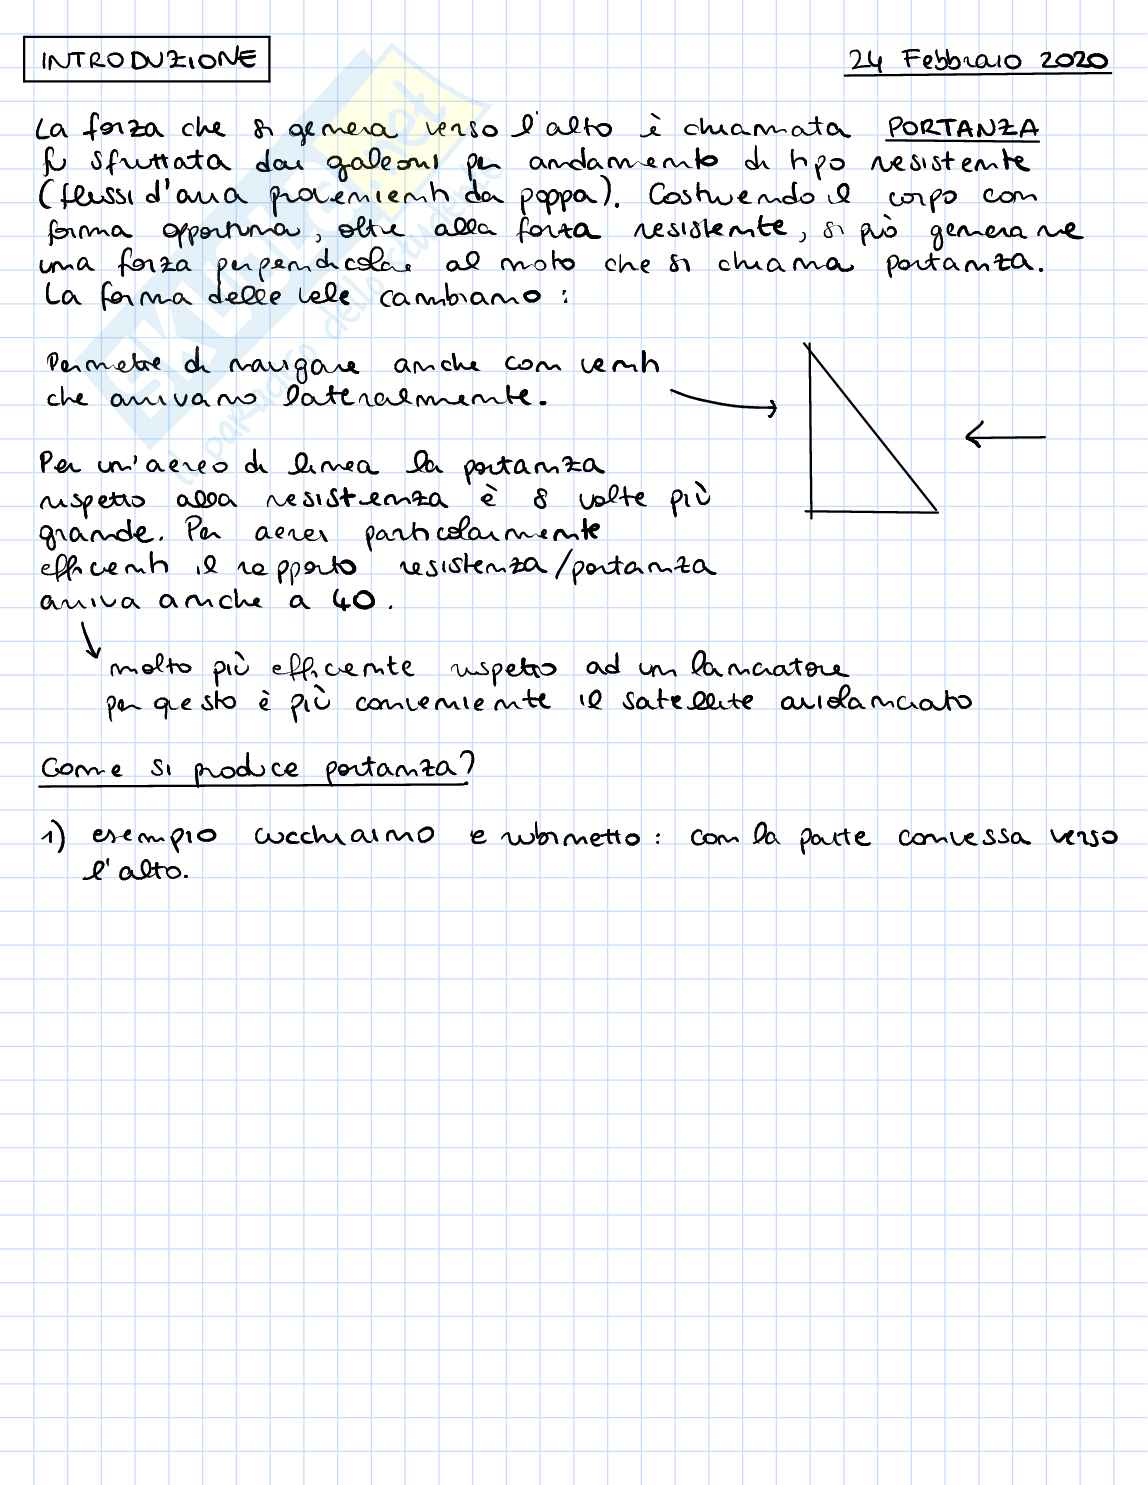 INTRODUZIONE
24 Febbraio 2020
La forza che si genera verso l'alto è chiamata PORTANZA
fu sfruttata dai galeoni per andamento di tipo resistente
(flussi d'aria provenienti da poppa). Costruendo il corpo con
forma opportuna, oltre alla forza resistente, si può generare
una forza perpendicolare al moto che si chiama portanza.
La forma delle vele cambiano :
Permette di navigare anche con venti
che arrivano lateralmente.
Per un'aereo di linea la portanza
rispetto alla resistenza è 8 volte più
grande. Per aerei particolarmente
efficenti il rapporto resistenza/portanza
arriva anche a 40.
molto più efficente rispetto ad un lanciatore
per questo è più conveniente il satellite aviolanciato
Come si produce portanza?
1) esempio cucchiaino e rubinetto : con la parte convessa verso
l'alto.